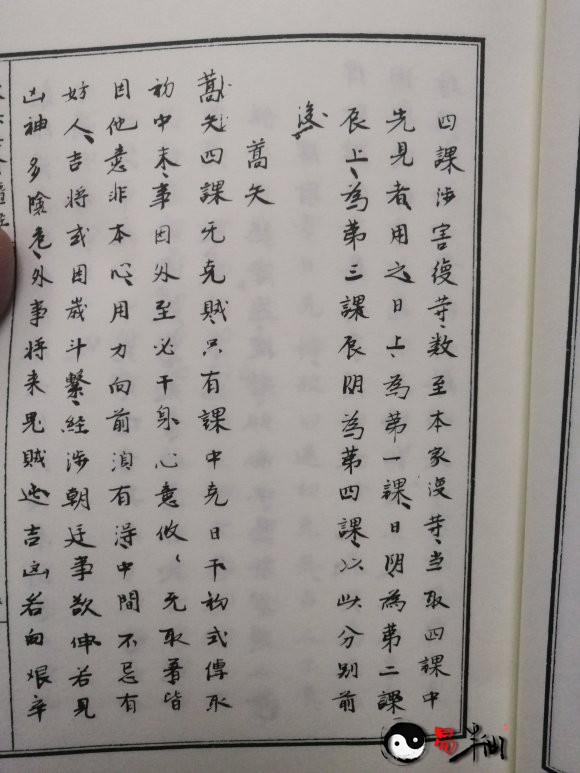 四課涉害復苛、數至本家復苛、當取四課中
先見者、用之、日上、為第一課、日阴、為第二課
辰上、為第三課、辰阴為第四課、以此分別前
後、
蒿矢
蒿矢四課无克賊、只有課中克日干初式傳取
初中末、事因外至必干身、心意攸、无取著皆
因他意非本心、用力向前須有淂、中間不忌有
妨人、吉將或因歲斗繫、經涉朝廷事欲伸若見
凶神多陰危、外事將来見賊逃吉凶若向艰辛
易